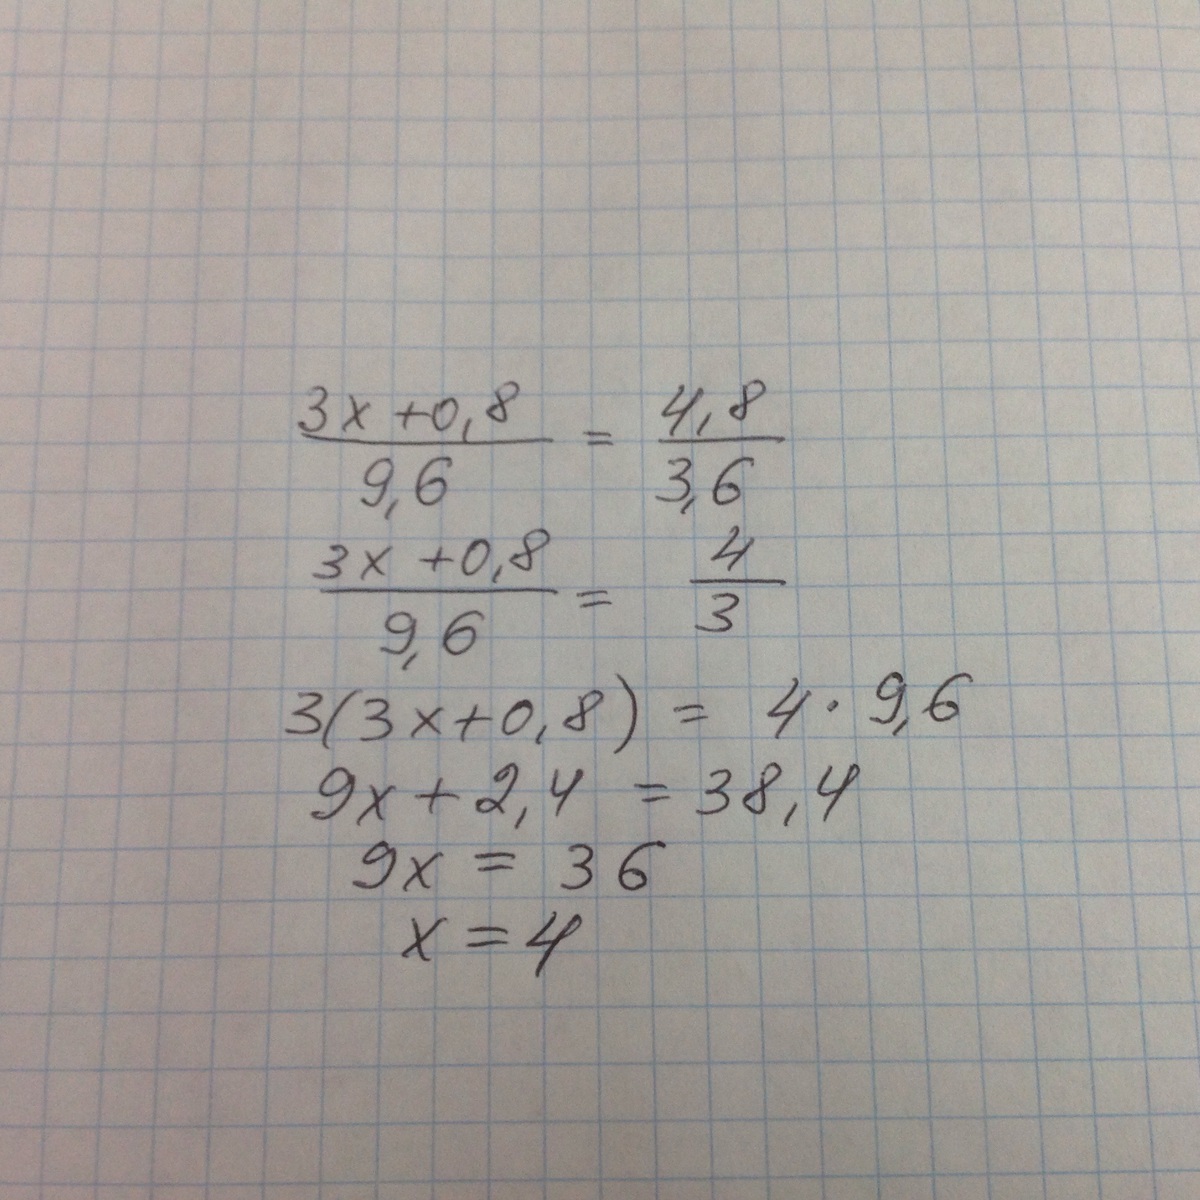 3x+0,8 / 9,6 = 4,8 / 3,6
3x+0,8 / 9,6 = 4 / 3
3(3x+0,8) = 4 · 9,6
9x+2,4 = 38,4
9x = 36
x = 4